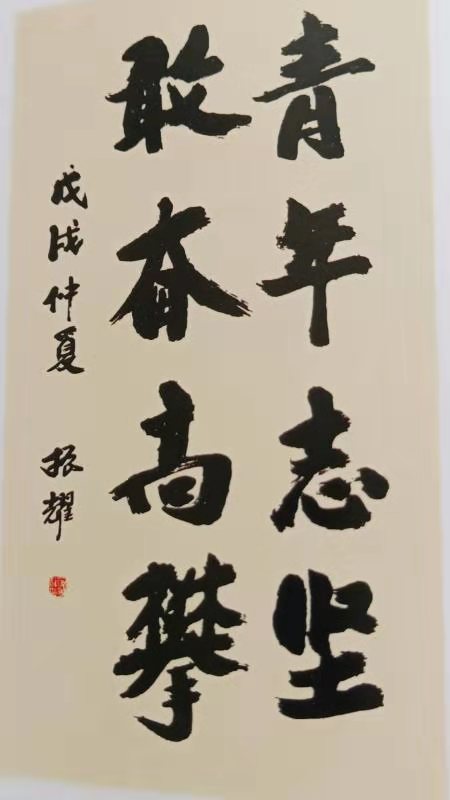 青年志坚
敢奋高攀
戊戌仲夏 振耀